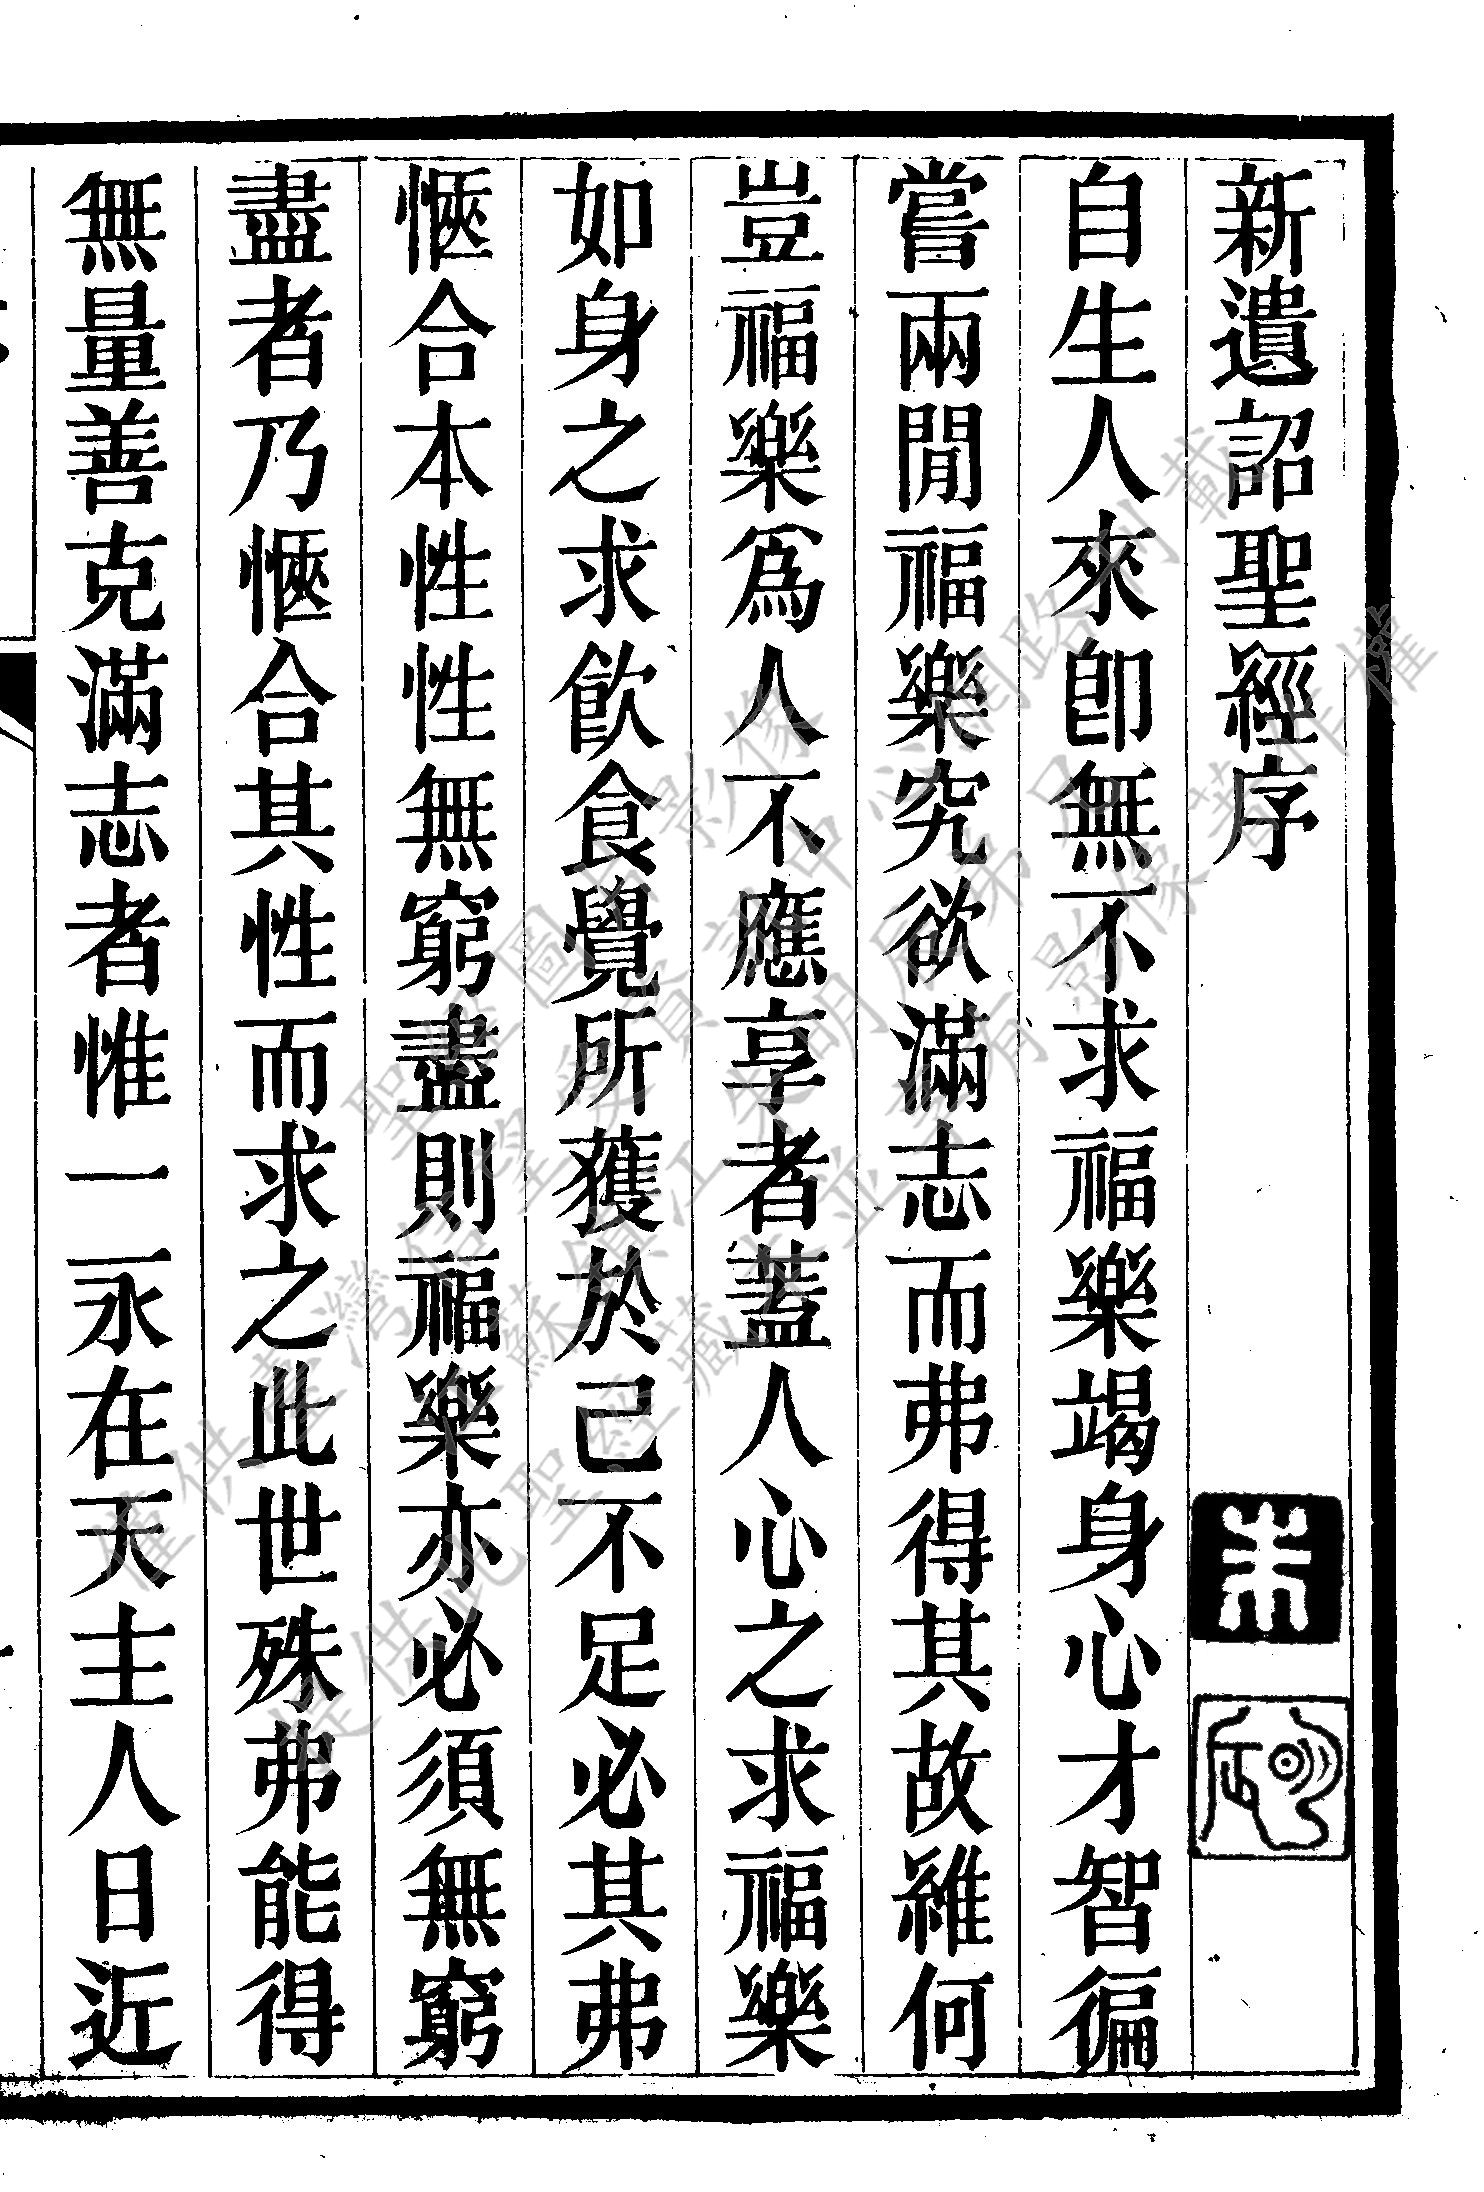 新遺詔聖經序
自生人來卽無不求福樂竭身心才智徧
嘗兩閒福樂究欲滿志而弗得其故維何
豈福樂爲人不應享者蓋人心之求福樂
如身之求飮食覺所獲於己不足必其弗
愜合本性性無窮盡則福樂亦必須無窮
盡者乃愜合其性而求之此世殊弗能得
無量善克滿志者惟一永在天主人日近